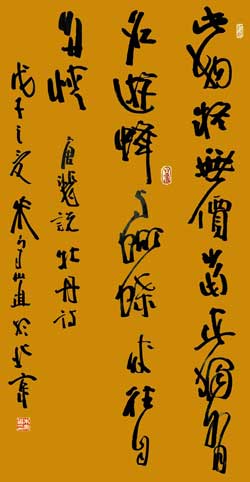 此物疑無價當春獨有
名遊蜂与蝴蝶来往自
多情 唐裴説牡丹詩
戊子之夏朱守道於北京